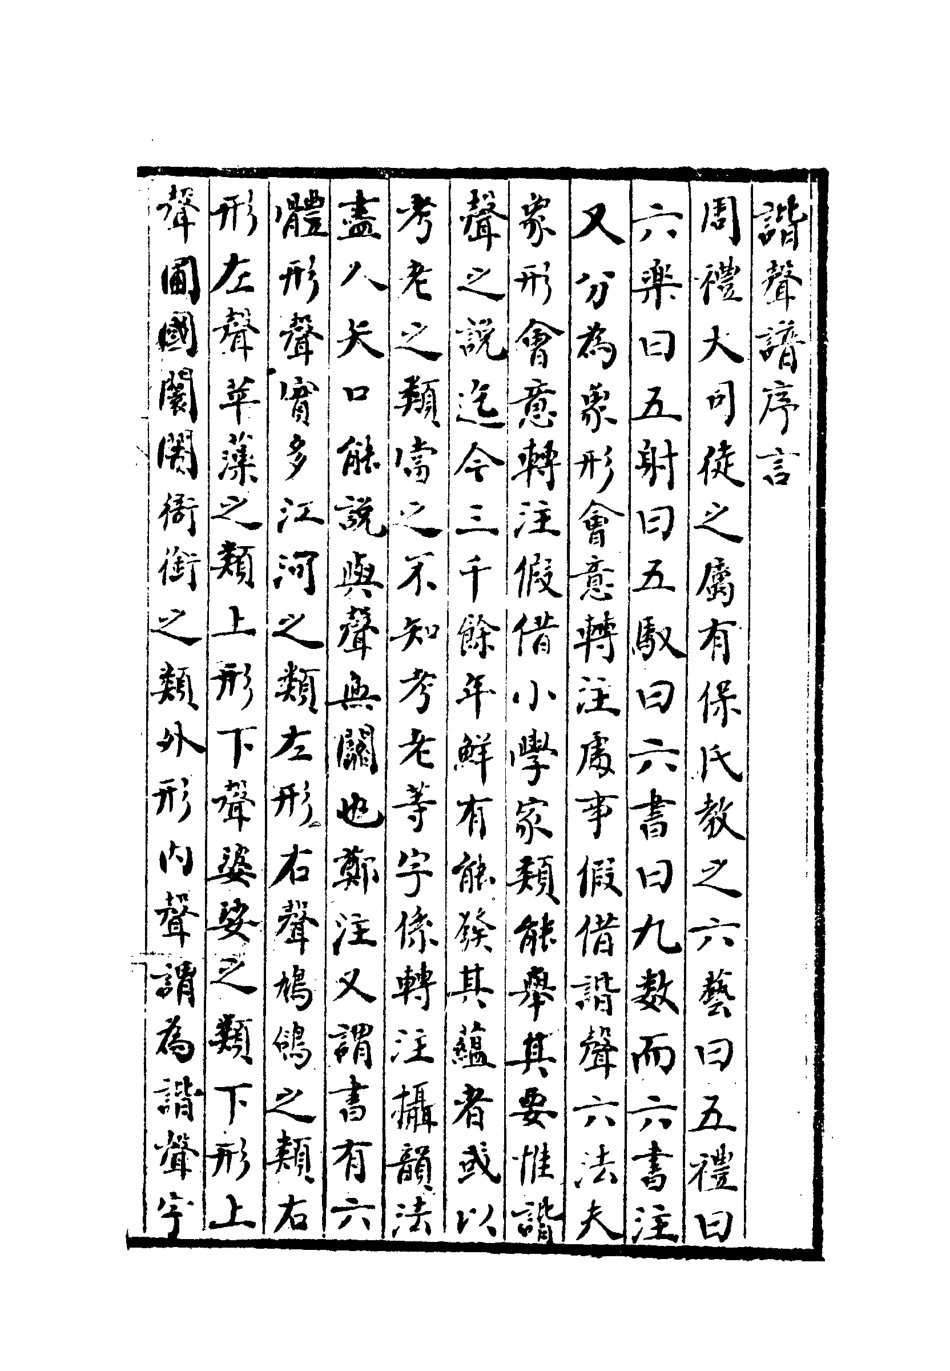 諧聲譜序言
周禮大司徒之屬有保氏教之六藝曰五禮曰
六樂曰五射曰五馭曰六書曰九数而六書注
又分為象形會意轉注處事假借諧聲六法夫
象形會意轉注假借小學家類能舉其要惟諧
聲之說迄今三千餘年鮮有能發其蘊者或以
考老之類當之不知考老等字係轉注攝韻法
盡人矢口能說與聲無關也鄭注又謂書有六
體形聲實多江河之類左形右聲鳩鴿之類右
形左聲草藻之類上形下聲婆娑之類下形上
聲圃國闤闠衙銜之類外形内聲謂為諧聲字